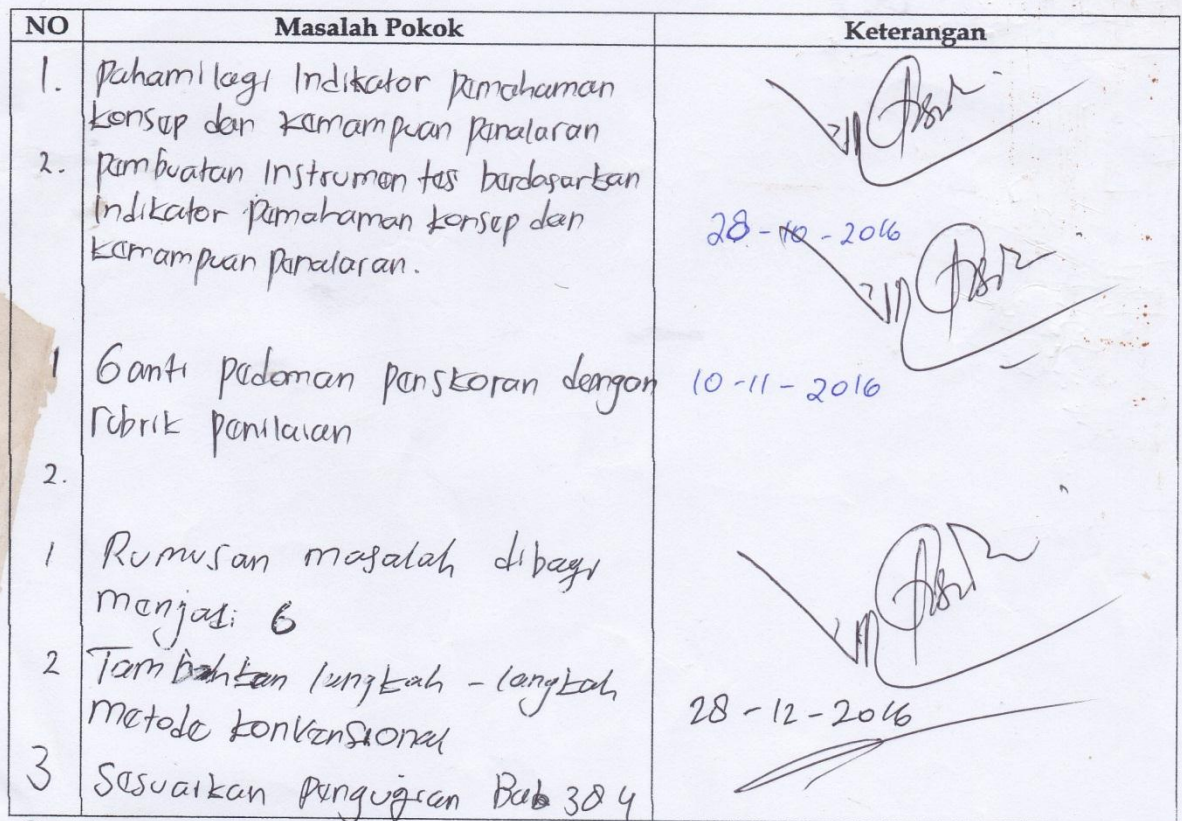 NO Masalah Pokok Keterangan
1. Pahami lagi Indikator pemahaman
konsep dan kemampuan penalaran
2. pembuatan Instrumen tes berdasarkan
Indikator pemahaman konsep dan
kemampuan penalaran.
28-10-2016
1 Ganti pedoman penskoran dengan
rubrik penilaian
10-11-2016
2.
1 Rumusan masalah dibagi
menjadi 6
2 Tambahkan langkah-langkah
metode konvensional
28-12-2016
3 Sesuaikan pengujian Bab 3 & 4